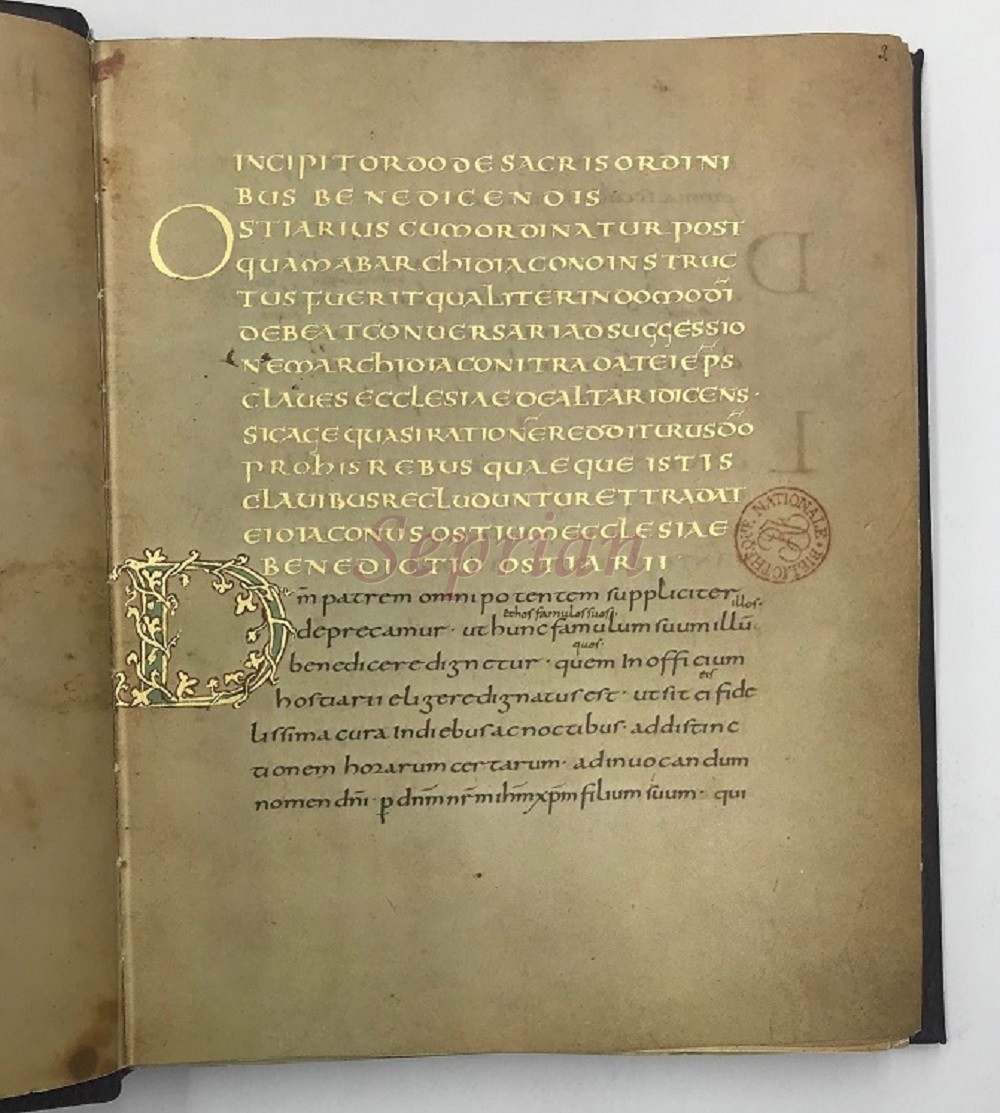 2
INCIPIT ORDO DE SACRIS ORDINI
BUS BENEDICENDIS
OSTIARIUS CUM ORDINATUR POST
QUAM AB ARCHIDIACONO INSTRUC
TUS FUERIT QUALITER IN DOMO DI
DEBEAT CONUERSARI AD SUGGESSIO
NEM ARCHIDIACONI TRADAT EI EPS
CLAUES ECCLESIAE DE ALTARI DICENS·
SIC AGE QUASI RATIONE REDDITURUS DO
PRO HIS REBUS QUAEQUE ISTIS
CLAUIBUS RECLUDUNTUR ET TRADAT
EI DIACONUS OSTIUM ECCLESIAE
BENEDICTIO OSTIARII
Dm̄ patrem omnipotentem suppliciter
illos·
et hos famulos suos·
deprecamur· ut hunc famulum suum illū
quos·
benedicere dignetur· quem In officium
eis
hostiarii eligere dignatus est· ut sit ei fide
lissima cura Indiebus ac noctibus· ad distinc
tionem horarum certarum· ad inuocandum
nomen dn̄i· p dnm̄ nr̄m ihm̄ xpm̄ filium suum· qui
BIBLIOTHEQUE NATIONALE
Seprian